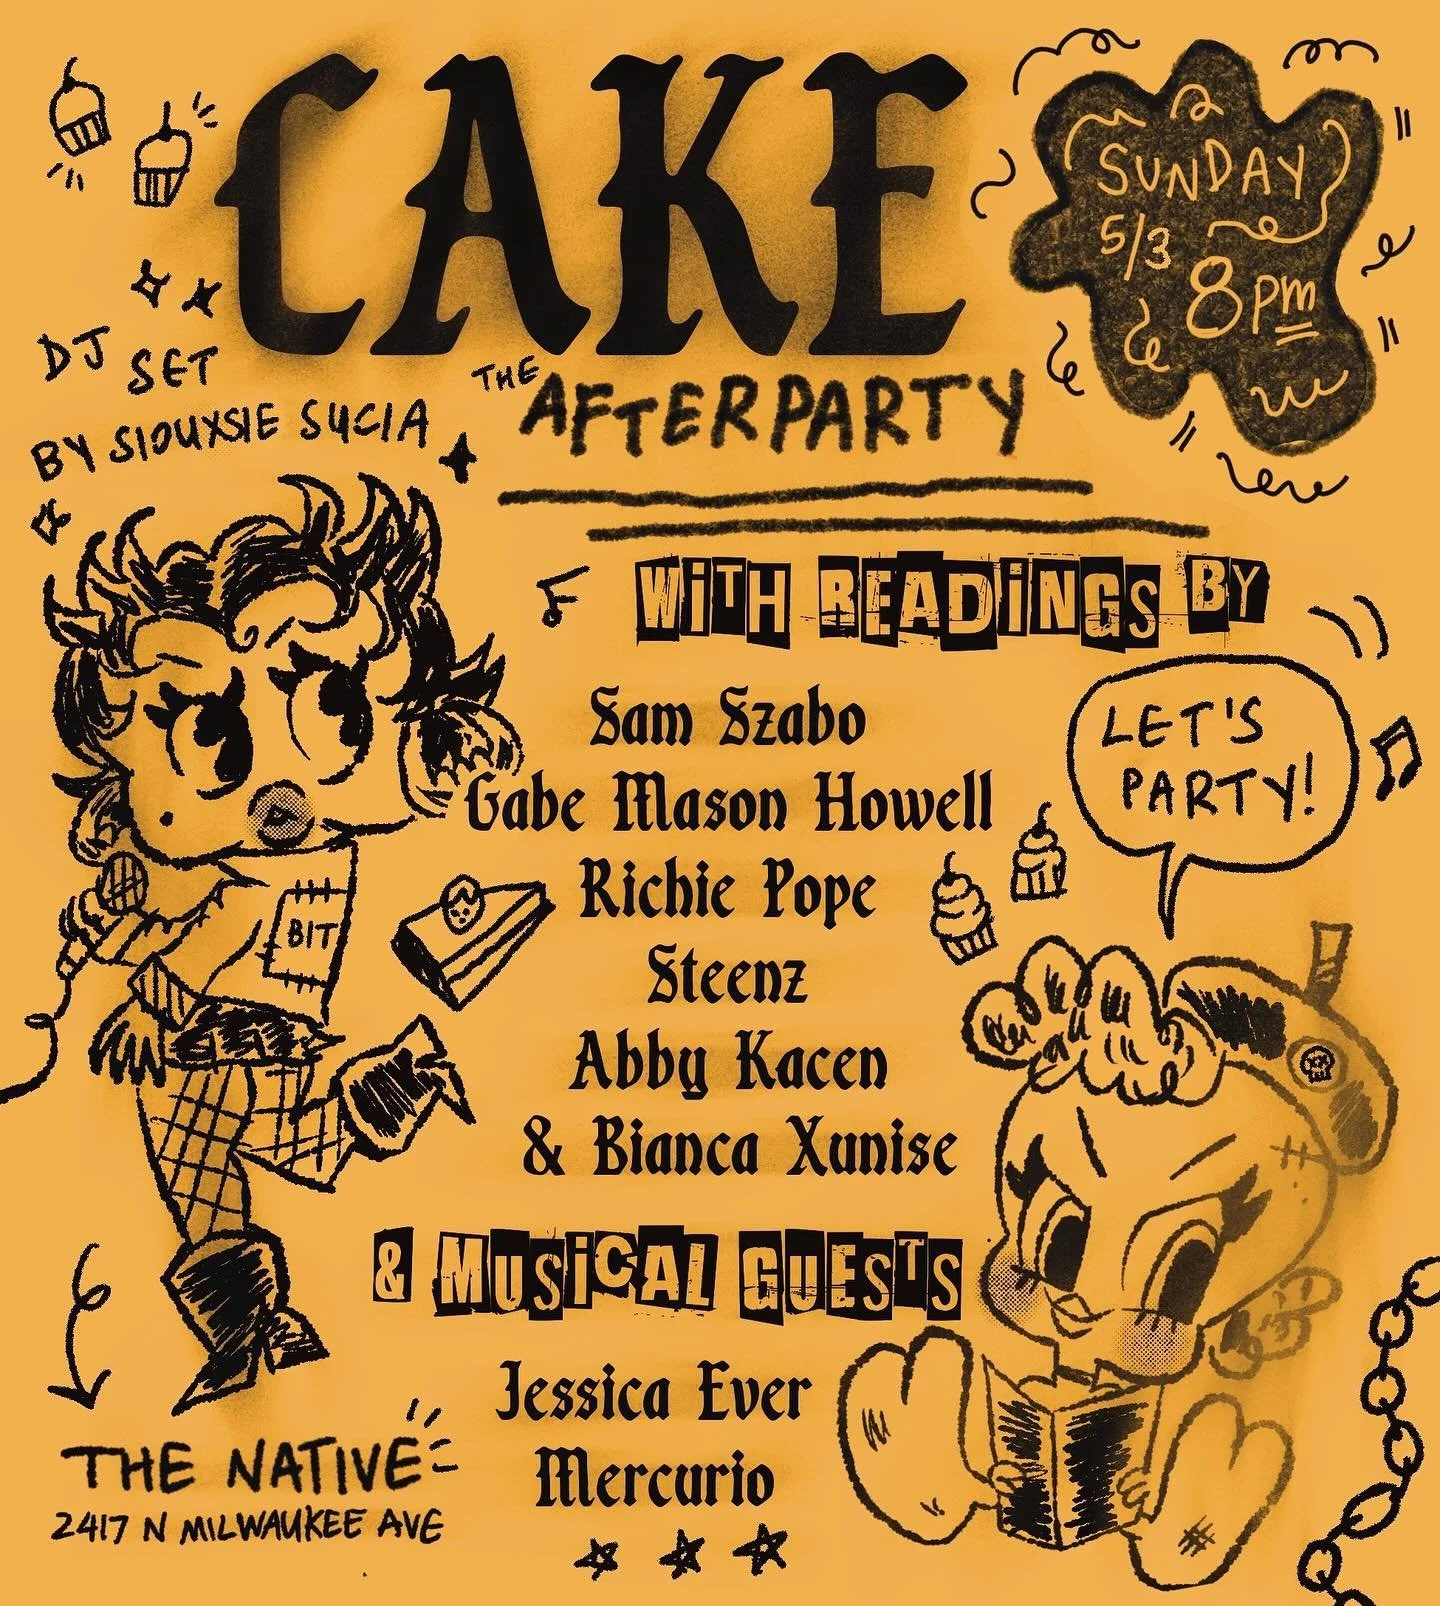 CAKE
SUNDAY
5/3
8pm
DJ SET
BY SIOUXSIE SUCIA
THE AFTERPARTY
WITH READINGS BY
Sam Szabo
Gabe Mason Howell
Richie Pope
Steenz
Abby Kacen
& Bianca Xunise
LET'S
PARTY!
BIT
& MUSICAL GUESTS
Jessica Ever
Mercurio
THE NATIVE
2417 N MILWAUKEE AVE